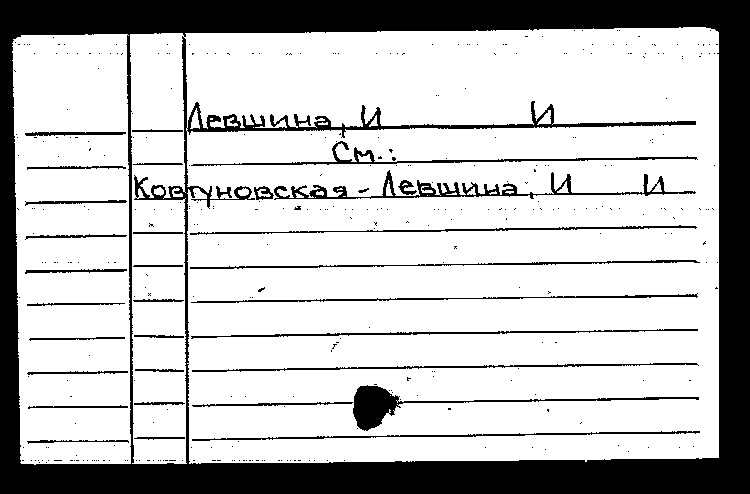 Левшина, И И
См.:
Ковтуновская - Левшина, И И